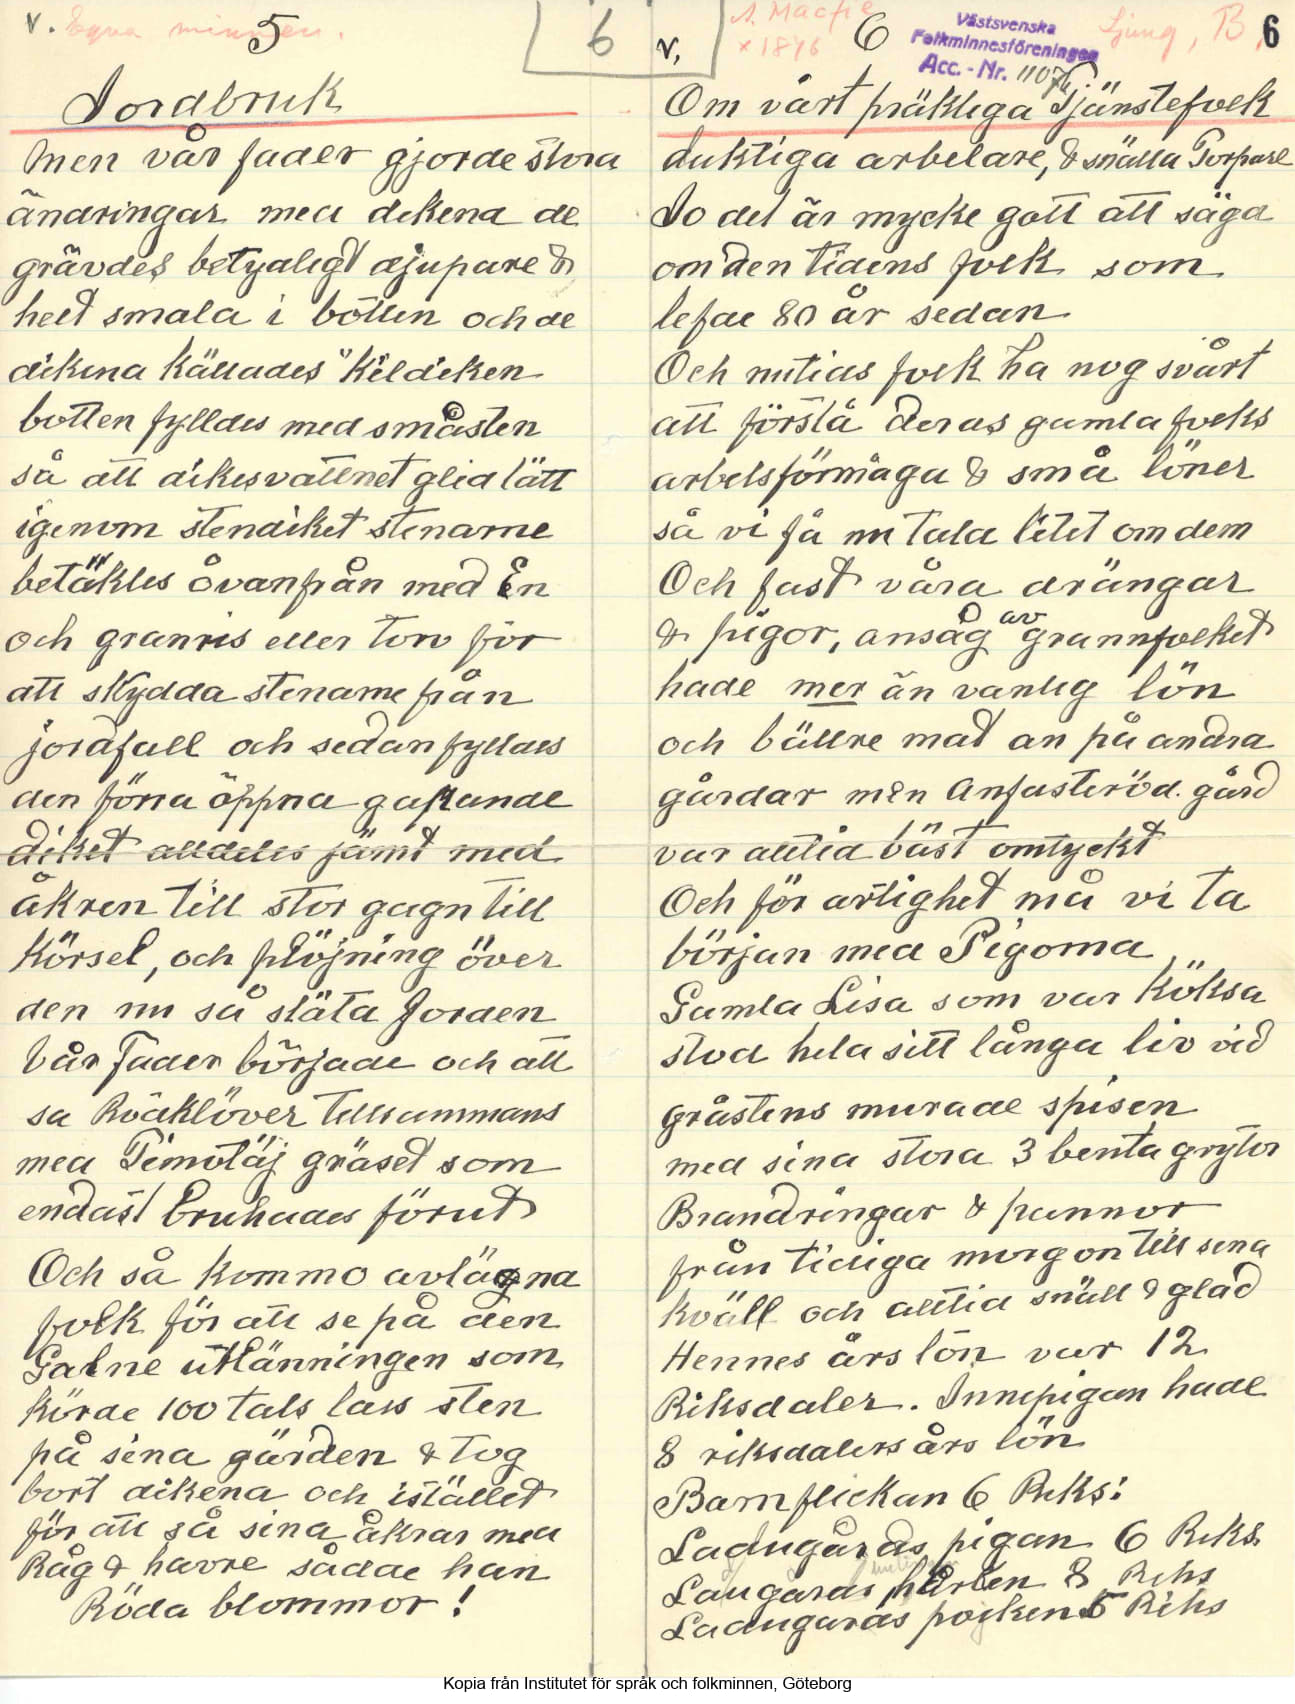 v. Egna minnen.
5
Jordbruk
Men vår fader gjorde stora
ändringar med dikena de
grävdes betydligt djupare &
helt smala i botten och de
dikena källades "kildiken
botten fylldes med småsten
så att dikesvattnet glid lätt
igenom stendiket stenarne
betäktes ovanfrån med En
och granris eller torv för
att skydda stenarne från
jordfall och sedan fylldes
den förra öppna gapande
diket alldeles jämt med
åkren till stor gagn till
körsel, och plöjning över
den nu så släta Jorden
Vår Fader började och att
sa Rödklöver tillsammans
med Timotäj gräset som
endast brukades förut
Och så kommo avlägna
folk för att se på den
Galne utlänningen som
körde 100 tals lass sten
på sina gärden & tog
bort dikena och istället
för att så sina åkrar med
Råg & havre sådde han
Röda blommor!
6
v,
A. Macfie
x 1846
6
Västsvenska
Folkminnesföreningen
Acc.-Nr. 1107
Ljung, B.
6
Om vårt präktiga Tjänstefolk
duktiga arbetare, & snälla Torpare
Jo det är mycke gott att säga
om den tidens folk som
lefde 80 år sedan
Och nutids folk ha nog svårt
att förstå deras gamla folks
arbetsförmåga & små löner
så vi få nu tala litet om dem
Och fast våra drängar
& pigor, ansåg av grannfolket
hade mer än vanlig lön
och bättre mat an på andra
gårdar men Anfasteröd. gård
var alltid bäst omtyckt
Och för artighet må vi ta
början med Pigorna
Gamla Lisa som var Köksa
stod hela sitt långa liv vid
gråstens murade spisen
med sina stora 3 benta grytor
Brandringar & pannor
från tidiga morgon till sena
kväll och alltid snäll & glad
Hennes års lön var 12
Riksdaler. Innepigan hade
8 riksdalers års lön
Barnflickan 6 Riks:
Ladugårds pigan 6 Riks.
Laugårds karlen 8 Riks
Ladugårds pojken 5 Riks
Kopia från Institutet för språk och folkminnen, Göteborg